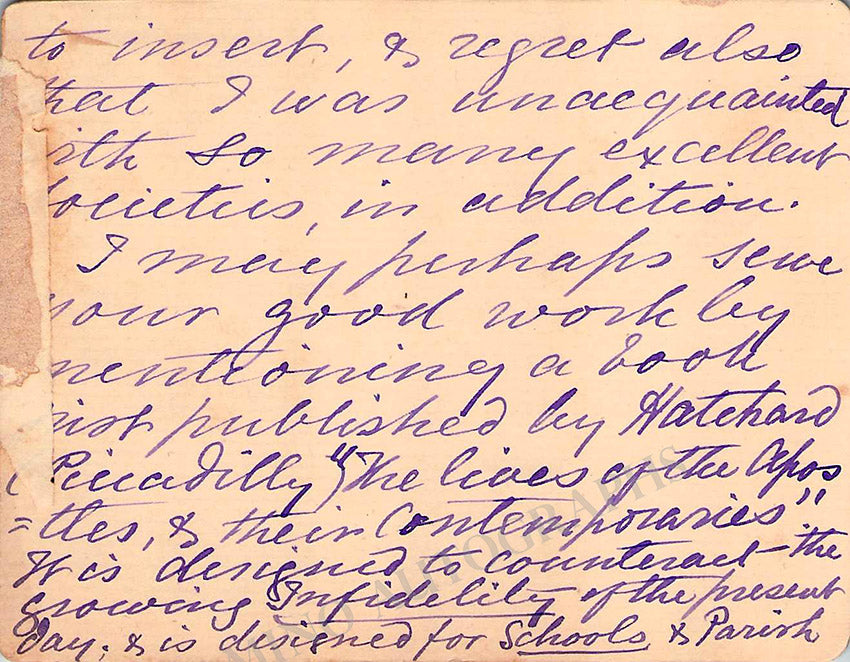 to insert, & regret also
that I was unacquainted
with so many excellent
Societies, in addition.
I may perhaps serve
your good work by
mentioning a book
just published by Hatchard
(Piccadilly) "The lives of the Apos
=tles, & their Contemporaries".
It is designed to counteract the
growing Infidelity of the present
day, & is designed for Schools & Parish
AUTOGRAPHS